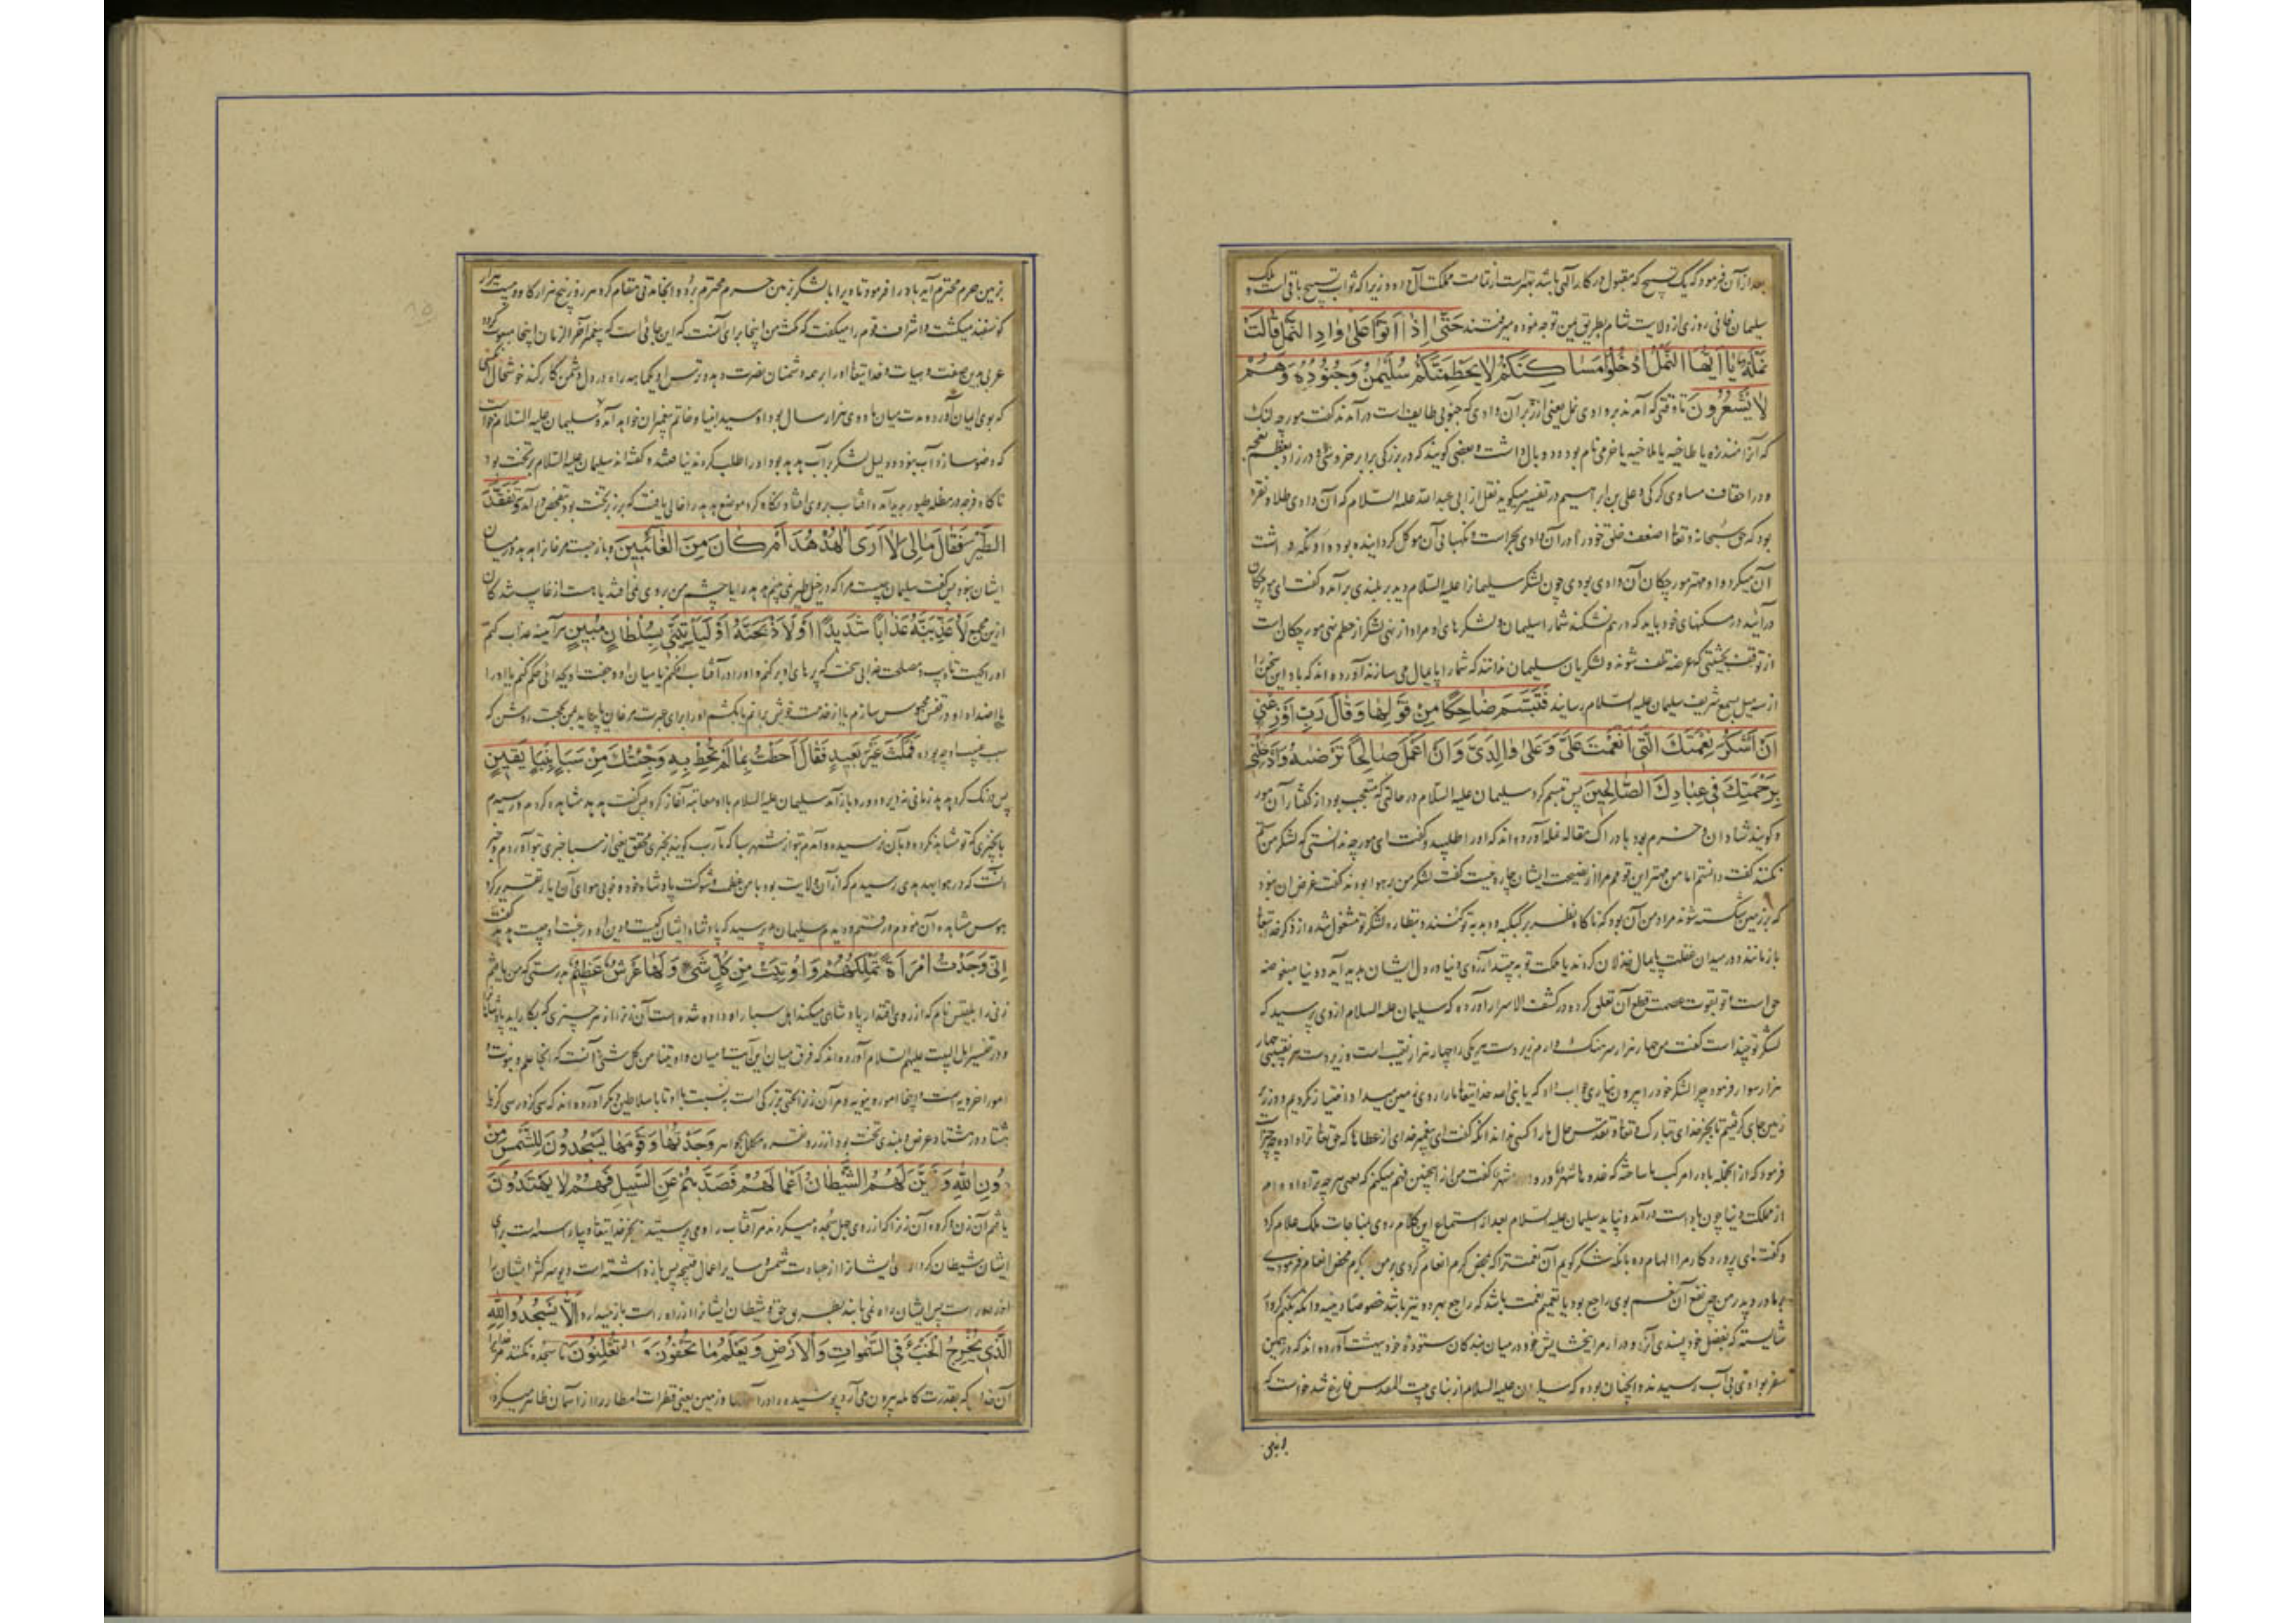 بعد از آن فرمود که یک تسبیح که مقبول درگاه الهی باشد بهتر است از تمامت مملکت آل داود زیرا که ثواب تسبیح باقی است و ملک
سلیمان فانی روزی از ولایت شام بطریق یمن توجه نموده میرفتند حَتّٰی اِذٰا اَتَوْا عَلٰی وٰادِ النَّمْلِ قٰالَتْ
نَمْلَةٌ یٰا اَیُّهَا النَّمْلُ ادْخُلُوا مَسٰاکِنَکُمْ لٰا یَحْطِمَنَّکُمْ سُلَیْمٰنُ وَجُنُودُهُ وَهُمْ
لٰا یَشْعُرُونَ تا وقتی که آمدند بر وادی نمل یعنی از زبر آن وادی که جنوبی طایف است درآمدند گفت مورچه لنگ
که آنرا منذره یا طاخیه یا ملاخیه یا خرمی نام بود و دو بال داشت و بعضی گویند که در بزرگی برابر خروسی و در زاد
و در احقاف مساوی گرگی و علی بن ابراهیم در تفسیر میگوید نقل از ابی عبدالله علیه السلام که آن وادی طلا و نقره
بود که حق سبحانه و تعالی اضعف خلق خود را در آن وادی بحراست و نگهبانی آن موکل گردانیده بود
آن میکرد و او مهتر مورچگان آن وادی بودی چون لشکر سلیمانرا علیه السلام دید بر بلندی برآمد و گفت ای مورچگان
درآئید در مسکنهای خود باید که در هم نشکند شما را سلیمان و لشکرهای او مراد از نهی لشکر از حطم نهی مورچگان است
از توقف بحیثیتی که عرضه تلف شوند و لشکریان سلیمان ندانند که شما را پایمال می سازند آورده اند که باد این سخن را
از سه میل بسمع شریف سلیمان علیه السلام رسانید فَتَبَسَّمَ ضٰاحِکًا مِنْ قَوْلِهٰا وَقٰالَ رَبِّ اَوْزِعْنِی
اَنْ اَشْکُرَ نِعْمَتَکَ الَّتِی اَنْعَمْتَ عَلَیَّ وَعَلٰی وٰالِدَیَّ وَاَنْ اَعْمَلَ صٰالِحًا تَرْضٰیهُ وَاَدْخِلْنِی
بِرَحْمَتِکَ فِی عِبٰادِکَ الصّٰالِحِینَ پس تبسم کرد سلیمان علیه السلام در حالتی که متعجب بود از گفتار آن مور
و گویند شادان و خرم بود بادراک مقاله نمله آورده اند که او را طلبید و گفت ای مورچه ندانستی که لشکر من ستم
نکنند گفت دانستم اما من مهتر این قومم مرا از نصیحت ایشان چاره نیست گفت لشکر من بر هوا بودند گفت غرض ان نبود
که بر زمین شکسته شوند مراد من آن بود که ناگاه نظر بر کبکبه و دبدبه تو کنند و بنظاره لشکر تو مشغول شده از ذکر خدایتعالی
بازمانند و در میدان غفلت پایمال خذلان گردند یا مملکت تو به بینند آرزوی دنیا در دل ایشان پدید آید و دنیا مبغوضه
حق است و در کشف الاسرار آورده که سلیمان علیه السلام از وی پرسید که
لشکر تو چند است گفت من چهار هزار سرهنگ دارم زیر دست هر یکی را چهار هزار نقیب است و زیر دست هر نقیبی چهار
هزار سوار فرمود چرا لشکر خود را بیرون نیاری جواب داد که یا نبی الله خدایتعالی ما را روی زمین میداد اختیار نکردیم و در زیر
زمین جای گرفتیم تا بجز خدای تبارک و تعالی و تقدس حال ما را کسی نداند انگه گفت ای پیغمبر خدای از عطاها که حق تعالی ترا داده چیزی
فرمود که از انجمله باد را مرکب ما ساخته که غدوها شهر و رواحها شهر گفت من از اینچنین فهم میکنم که یعنی هر چه ترا داده ام
از مملکت دنیا چون باد است درآید و نپاید سلیمان علیه السلام بعد از استماع این کلام روی بمناجات ملک علام کرد
و گفت ای پروردگار مرا الهام ده بآنکه شکر گویم آن نعمتت را که بمحض کرم انعام کردی بر من بکرم محض انعام فرمودی
بر مادر و پدر من چه نفع آن نعم بوی راجع بود یا تعمیم نعمت باشد که راجع بهر دو نیز باشد خصوصا دینیه و آنکه بکنم کردار
شایسته که بفضل خود پسندی آنرا و درآر مرا ببخشایش خود در میان بندگان ستوده خود ببهشت آورده اند که در همین
سفر بوادئی بی آب رسیدند و اینچنان بوده که سلیمان علیه السلام از بنای بیت المقدس فارغ شد خواست که
بزمین حرم محترم آید باد را فرمود تا ویرا با لشکر زمین حرم محترم برد و انجا مدتی مقام کرد هر روز پنج هزار گاو و بیست هزار
گوسفند میکشت و اشراف قوم را میگفت که مکث من اینجا برای آنست که این جائی است که پیغمبر آخر الزمان اینجا مبعوث گردد
عربی بدین صفت و هیات و خدایتعالی او را بر همه دشمنان نصرت دهد و ترس او یکماهه راه در دل دشمن کار کند خوشحال کسی
که بوی ایمان آورد و مدت میان ما و وی هزار سال بود او سید انبیا و خاتم پیغمبران خواهد آمد و سلیمان علیه السلام خواست
که وضو سازد آب نبود و دلیل لشکر بر آب هدهد بود او را طلب کردند نیافتند گفته اند سلیمان علیه السلام بر تخت بود
ناگاه فرجه در مظله طیور پدید آمده آفتاب بروی افتاد نگاه کرد موضع هدهد را خالی یافت که بر زبر تخت بود بتفحص درآمد وَتَفَقَّدَ
الطَّیْرَ فَقٰالَ مٰا لِیَ لٰا اَرَی الْهُدْهُدَ اَمْ کٰانَ مِنَ الْغٰائِبِینَ و باز جست مرغانرا هدهد در میان
ایشان نبود پس گفت سلیمان چیست مرا که در خیل طیر نمی بینم هدهد را یا چشم من بر وی نمی افتد یا هست از غایب شدگان
ازین مجمع لَاُعَذِّبَنَّهُ عَذٰابًا شَدِیدًا اَوْ لَاَذْبَحَنَّهُ اَوْ لَیَأْتِیَنِّی بِسُلْطٰانٍ مُبِینٍ هرآینه عذاب کنم
او را بجهت تادیب و مصلحت عذابی سخت که پرهای او برکنم و او را در آفتاب افکنم یا میان او و جفت او جدائی حکم کنم یا او را
با اضداد او در قفس محبوس سازم یا از خدمت خویش برانم یا بکشم او را برای عبرت مرغان یا بیاید بمن بحجت روشن که
سبب غیبت او چه بوده فَمَکَثَ غَیْرَ بَعِیدٍ فَقٰالَ اَحَطْتُ بِمٰا لَمْ تُحِطْ بِهِ وَجِئْتُکَ مِنْ سَبَإٍ بِنَبَإٍ یَقِینٍ
پس درنگ کرد هدهد زمانی نه دیر و دور و بازآمد سلیمان علیه السلام با او معاتبه آغاز کرد پس گفت هدهد مشاهده کردم و رسیدم
بآنچیزی که تو مشاهده نکرده و بآن نرسیده و آمدم بتو از شهر سبا که مآرب گویند بخبری محقق یعنی از سبا خبری بتو آوردم و خبر
آنست که در هوا بهدهدی رسیدم که از آن ولایت بود با من عظمت و شوکت پادشاه خود و خوبی هوای آن دیار تقریر کرد
هوس مشاهده آن نمودم و رفتم و دیدم سلیمان پرسید که پادشاه ایشان کیست و دین او و رغبت او چیست هدهد گفت
اِنِّی وَجَدْتُ امْرَأَةً تَمْلِکُهُمْ وَاُوتِیَتْ مِنْ کُلِّ شَیْءٍ وَلَهٰا عَرْشٌ عَظِیمٌ بدرستی که من یافتم
زنی را بلقیس نام که از روی اقتدار پادشاهی میکند اهل سبا را و داده شده است آن زنرا از هر چیزی که بکار آید پادشاهانرا
و در تفسیر اهل البیت علیهم السلام آورده اند که فرق میان این آیت و میان و اوتینا من کل شیء آنست که انجا علم و نبوت و
امور اخرویه است و اینجا امور دنیویه و مر آن زنرا تختی بزرگی است به نسبت با او تا با سلاطین دیگر آورده اند که سی گز در سی گز یا
هشتاد در هشتاد عرض و بلندی تخت بود از زر و نقره مکلل بجواهر وَجَدْتُهٰا وَقَوْمَهٰا یَسْجُدُونَ لِلشَّمْسِ مِنْ
دُونِ اللّٰهِ وَزَیَّنَ لَهُمُ الشَّیْطٰانُ اَعْمٰالَهُمْ فَصَدَّهُمْ عَنِ السَّبِیلِ فَهُمْ لٰا یَهْتَدُونَ
یافتم آن زن و گروه آن زنرا که از روی جهل سجده میکردند مر آفتاب را و می پرستیدند بجز خدایتعالی و بیاراسته است برای
ایشان شیطان کردارهای ایشانرا از عبادت شمس و سایر اعمال قبیحه پس بازداشته است دیو سرکش ایشان را
از راه راست پس ایشان راه نمی یابند بطریق حق و شیطان ایشانرا از راه راست باز میدارد اَلّٰا یَسْجُدُوا لِلّٰهِ
الَّذِی یُخْرِجُ الْخَبْءَ فِی السَّمٰوٰاتِ وَالْاَرْضِ وَیَعْلَمُ مٰا تُخْفُونَ وَمٰا تُعْلِنُونَ تا سجده نکنند مر خدایرا
آن خدائی که بقدرت کامله بیرون می آرد پوشیده را در آسمانها و زمین یعنی قطرات امطار را از آسمان ظاهر میکرد